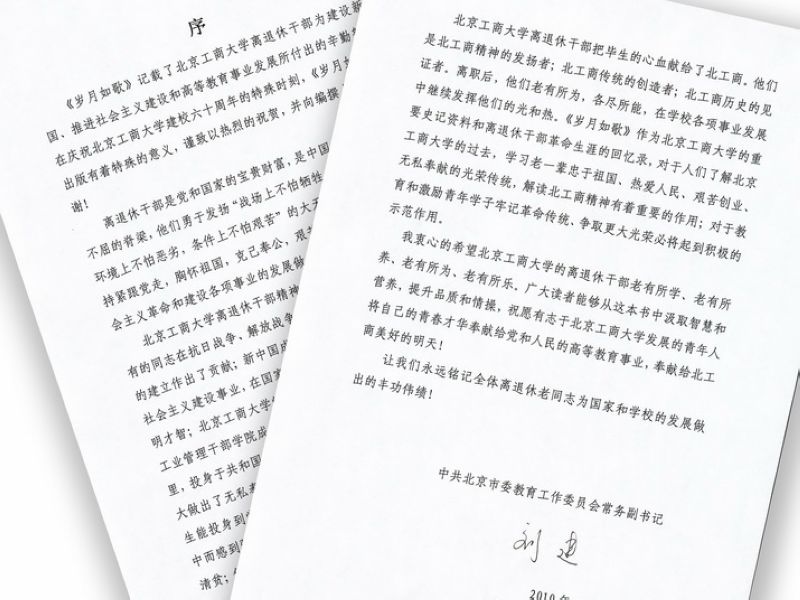 序
《岁月如歌》记载了北京工商大学离退休干部为建设新
国、推进社会主义建设和高等教育事业发展所付出的辛勤
在庆祝北京工商大学建校六十周年的特殊时刻,《岁月如
出版有着特殊的意义,谨致以热烈的祝贺,并向编撰
谢!
离退休干部是党和国家的宝贵财富,是中国
不屈的脊梁,他们勇于发扬“战场上不怕牺牲
环境上不怕恶劣,条件上不怕艰苦”的大无
持紧跟党走,胸怀祖国,克己奉公,艰
会主义革命和建设各项事业的发展做
北京工商大学离退休干部精神
有的同志在抗日战争、解放战争
的建立作出了贡献;新中国成
社会主义建设事业,在国家
明才智;北京工商大学
工业管理干部学院成
里,投身于共和国
大做出了无私
生能投身到
中而感到
清贫;
北京工商大学离退休干部把毕生的心血献给了北工商。他们
是北工商精神的发扬者;北工商传统的创造者;北工商历史的见
证者。离职后,他们老有所为,各尽所能,在学校各项事业发展
中继续发挥他们的光和热。《岁月如歌》作为北京工商大学的重
要史记资料和离退休干部革命生涯的回忆录,对于人们了解北京
工商大学的过去,学习老一辈忠于祖国、热爱人民、艰苦创业、
无私奉献的光荣传统,解读北工商精神有着重要的作用;对于教
育和激励青年学子牢记革命传统、争取更大光荣必将起到积极的
示范作用。
我衷心的希望北京工商大学的离退休干部老有所学、老有所
养、老有所为、老有所乐。广大读者能够从这本书中汲取智慧和
营养,提升品质和情操,祝愿有志于北京工商大学发展的青年人
将自己的青春才华奉献给党和人民的高等教育事业,奉献给北工
商美好的明天!
让我们永远铭记全体离退休老同志为国家和学校的发展做
出的丰功伟绩!
中共北京市委教育工作委员会常务副书记
刘建
2010年